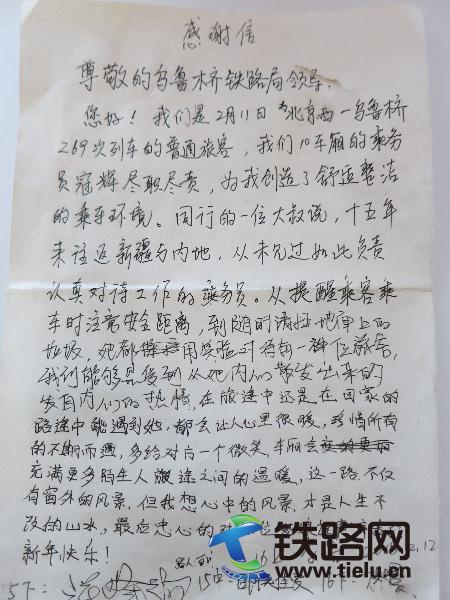 感谢信
尊敬的乌鲁木齐铁路局领导:
您好!我们是2月11日 北京西-乌鲁木齐
269次列车的普通旅客,我们10车厢的乘务
员冠辉尽职尽责,为我创造了舒适整洁
的乘车环境。同行的一位大叔说,十五年
来往返新疆与内地,从未见过如此负责
认真对待工作的乘务员。从提醒乘客乘
车时注意安全距离,到随时清扫地面上的
垃圾,她都 用笑脸对待每一位旅客,
我们能够 从她 发出来的
发自内 的热情,在旅途中还是在回家的
路途中能遇到她,都会让人心里很暖,珍惜所有
的不期而遇,多给对方一个微笑,车厢会
充满更多陌生人旅途之间的温暖,这一路不仅
有窗外的风景,但我想心中的风景,才是人生不
改的山水,最后忠心的
新年快乐!
2.12
15中: 16下:
铁路网
www.tielu.cn